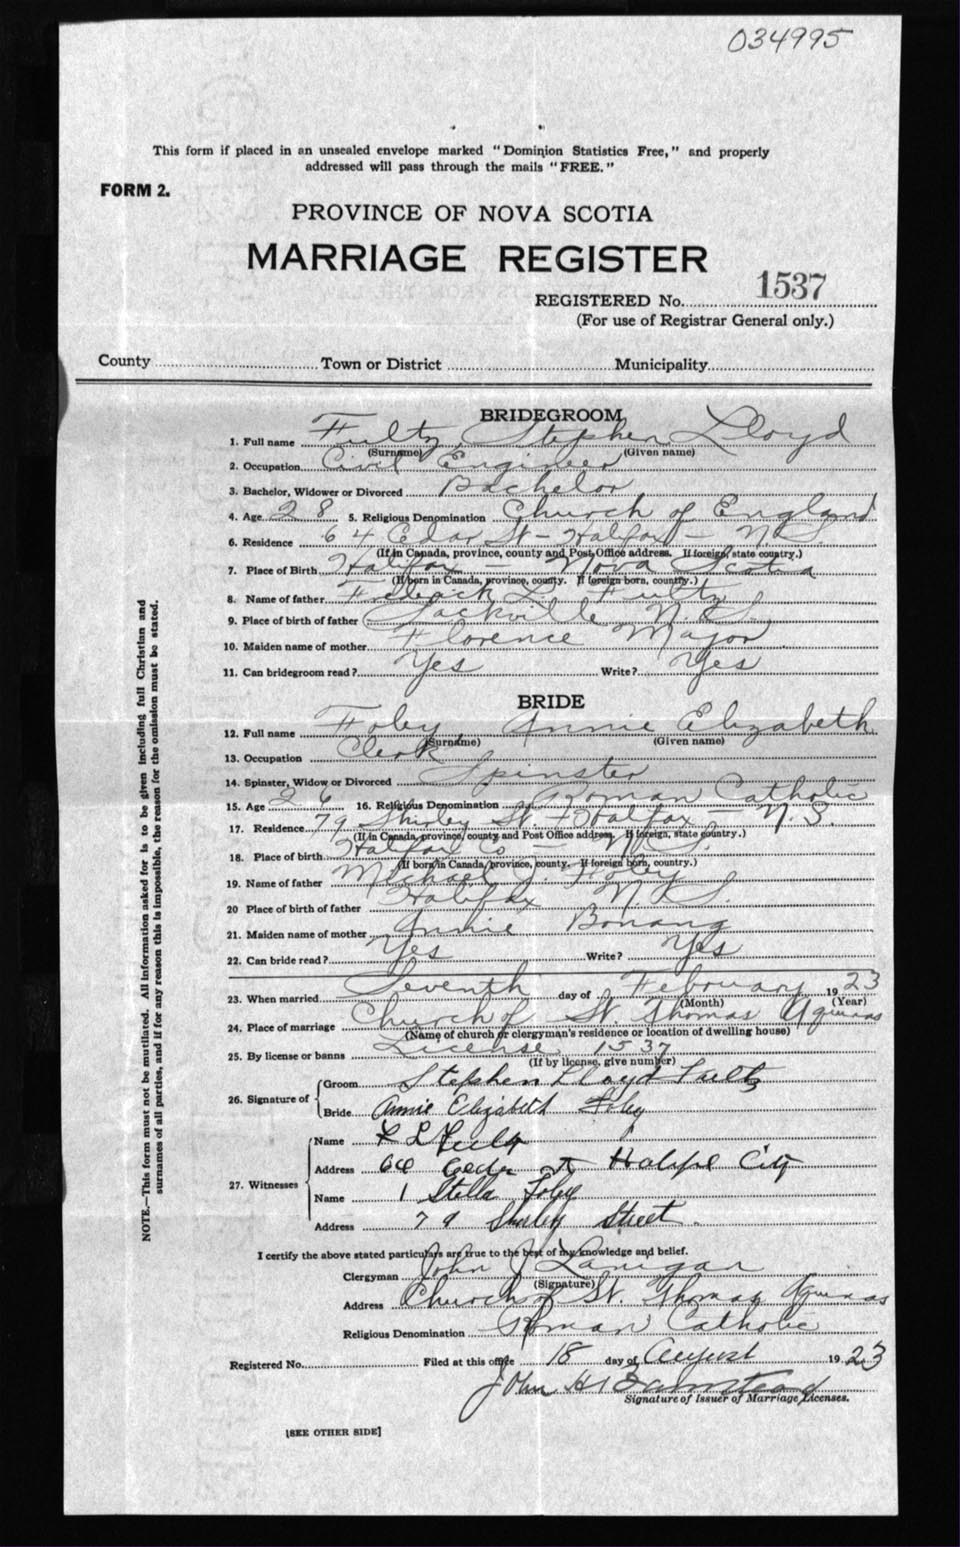 034995
This form if placed in an unsealed envelope marked "Dominion Statistics Free," and properly
addressed will pass through the mails "FREE."
FORM 2.
PROVINCE OF NOVA SCOTIA
MARRIAGE REGISTER
REGISTERED No. 1537
(For use of Registrar General only.)
County Town or District Municipality
BRIDEGROOM
1. Full name Fultz, Stephen Lloyd
(Surname) (Given name)
2. Occupation Civil Engineer
3. Bachelor, Widower or Divorced Bachelor
4. Age 28 5. Religious Denomination Church of England
6. Residence 64 Edar St - Halifax - N.S.
(If in Canada, province, county and Post Office address. If foreign, state country.)
7. Place of Birth Halifax - Nova Scotia
(If born in Canada, province, county. If foreign born, country.)
8. Name of father L. Fultz
9. Place of birth of father Sackville N.S.
10. Maiden name of mother Florence Major
11. Can bridegroom read? Yes Write? Yes
BRIDE
12. Full name Foley Annie Elizabeth
(Surname) (Given name)
13. Occupation Clerk
14. Spinster, Widow or Divorced Spinster
15. Age 26 16. Religious Denomination Roman Catholic
17. Residence 79 Shirley St. - Halifax - N.S.
(If in Canada, province, county and Post Office address. If foreign, state country.)
18. Place of birth Halifax Co - N.S.
(If born in Canada, province, county. If foreign born, country.)
19. Name of father Michael J Foley
20 Place of birth of father Halifax N.S.
21. Maiden name of mother Annie Bonang
22. Can bride read? Yes Write? Yes
23. When married Seventh day of February 1923
(Month) (Year)
24. Place of marriage Church of St. Thomas Aquinas
(Name of church or clergyman's residence or location of dwelling house)
25. By license or banns License 1537
(If by license, give number)
26. Signature of
Groom Stephen Lloyd Fultz
Bride Annie Elizabeth Foley
27. Witnesses
Name F L Fultz
Address 64 St Halifax City
Name Stella Foley
Address 79 Shirley Street.
I certify the above stated particulars are true to the best of my knowledge and belief.
Clergyman John J Lanigan
(Signature)
Address Church of St. Thomas Aquinas
Religious Denomination Roman Catholic
Registered No. Filed at this office 18 day of August 1923
John H
Signature of Issuer of Marriage Licenses.
[SEE OTHER SIDE]
NOTE.—This form must not be mutilated. All information asked for is to be given including full Christian and
surnames of all parties, and if for any reason this is impossible, the reason for the omission must be stated.